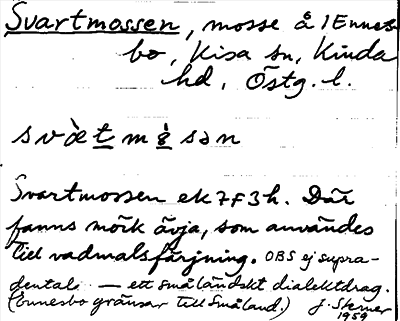 Svartmossen, mosse å 1 Ennes-
bo, Kisa sn, Kinda
hd, Östg. l.
svæ̀t m s ə n
Svartmossen ek 7F3h. Där
fanns mörk ävja, som användes
till vadmalsfärjning. OBS ej supra-
dentale — ett småländskt dialektdrag.
(Ennesbo gränsar till Småland.) J. Skerner
1959